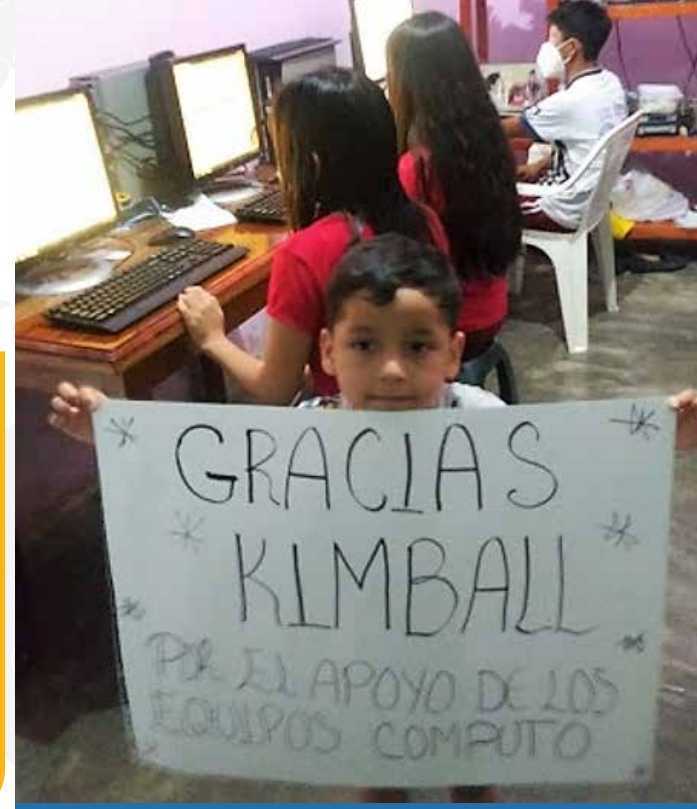 GRACIAS
KIMBALL
POR EL APOYO DE LOS
EQUIPOS COMPUTO